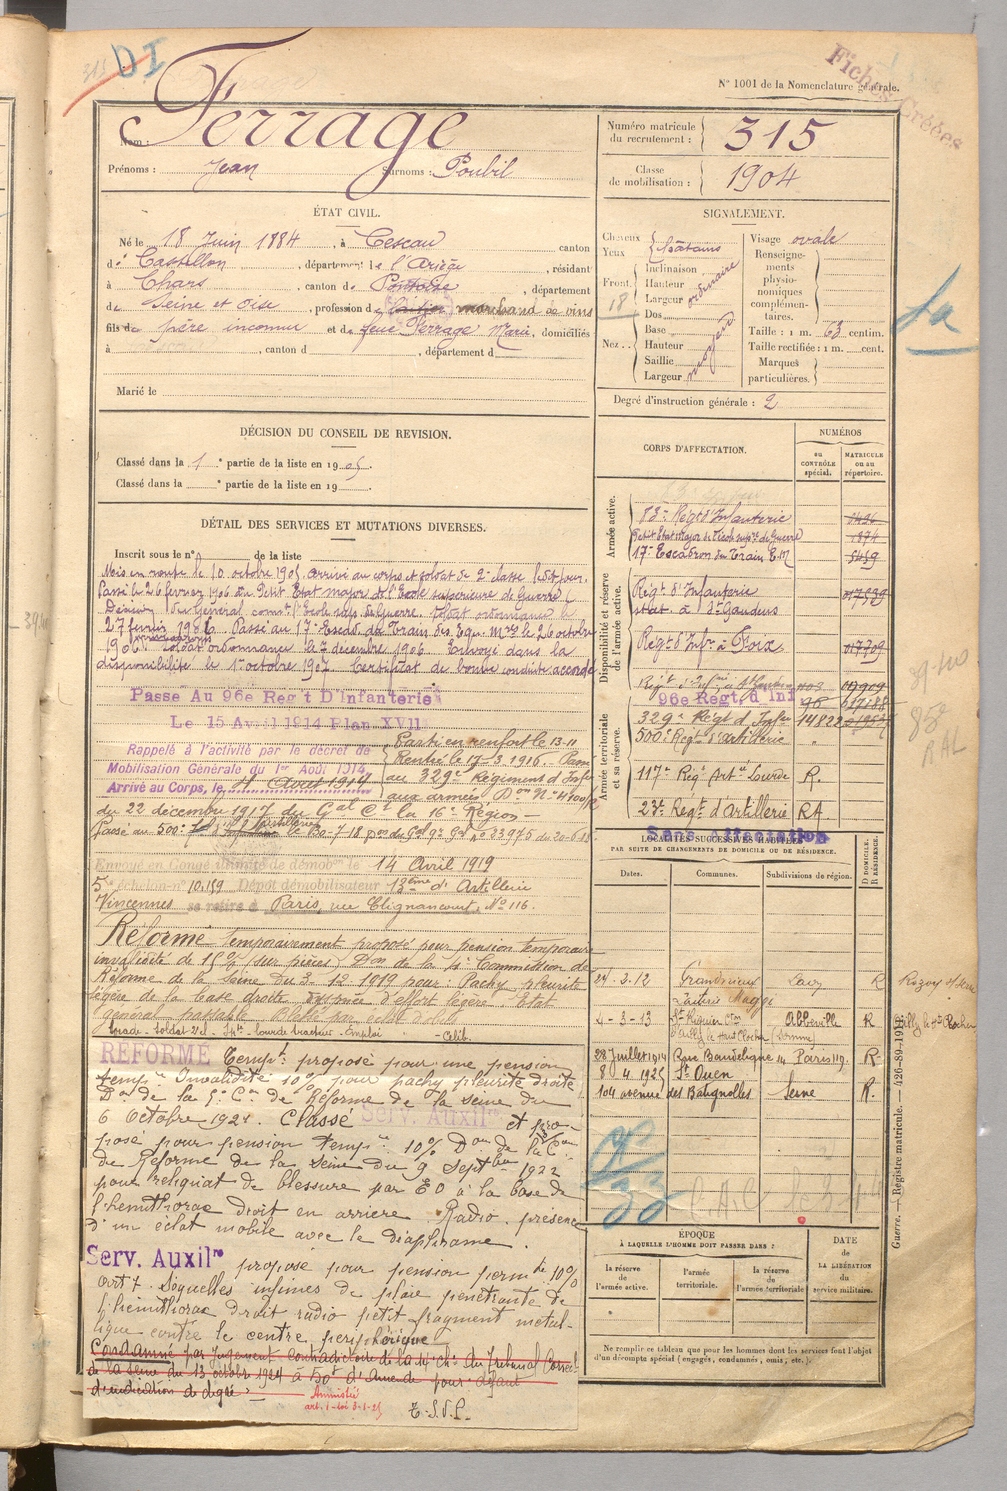 313 DI
Fiches Créées
N° 1001 de la Nomenclature générale.
Nom : Ferrage
Prénoms : Jean Surnoms : Poubil
Numéro matricule du recrutement : 315
Classe de mobilisation : 1904
ÉTAT CIVIL.
Né le 18 Juin 1884, à Cescau canton
de Castillon, département de l'Ariège, résidant
à Chars, canton de Pontoise, département
de Seine et Oise, profession de laitier marchand de vins
fils de père inconnu et de feue Ferrage Marie, domiciliés
à , canton d , département d
Marié le
SIGNALEMENT.
Cheveux
Yeux
châtains
Front.
Inclinaison
Hauteur
Largeur
ordinaire
18
Nez
Dos
Base
Hauteur
Saillie
Largeur
moyen
Visage ovale
Renseignements physionomiques complémentaires.
Taille : 1 m. 63 centim.
Taille rectifiée : 1 m. cent.
Marques particulières.
Degré d'instruction générale : 2
DÉCISION DU CONSEIL DE REVISION.
Classé dans la 1e partie de la liste en 1905.
Classé dans la e partie de la liste en 19 .
DÉTAIL DES SERVICES ET MUTATIONS DIVERSES.
Inscrit sous le n° de la liste
Mis en route le 10 octobre 1905, arrivé au corps et soldat de 2e classe ledit jour.
Passé le 26 février 1906 au Petit Etat major de l'Ecole supérieure de Guerre
Décision du Général comt l'Ecole sup. de Guerre. Soldat ordonnance le
27 février 1906. Passé au 17e Escad. du Train des Equ. Mres le 26 octobre
1906. Soldat ordonnance le 7 décembre 1906. Envoyé dans la
disponibilité le 1er octobre 1907. Certificat de bonne conduite accordé
Passé Au 96e Reg't D'Infanterie
Le 15 Avril 1914 Plan XVII
Rappelé à l'activité par le décret de
Mobilisation Générale du 1er Août 1914
Arrivé au Corps, le 4 Août 1914
Parti en renfort le 13-11
Rentré le 17-3-1916. Passé
au 329e Régiment d'Infie
aux armées Don N° 4400/2
du 22 décembre 1917 du Gal Ct la 16e Région –
Passé au 500e Régt d'Artillerie le 30-7-18
Envoyé en Congé illimité de démob. le 14 Avril 1919
5e échelon n° 10,159 Dépôt démobilisateur 13ème d'Artillerie
Vincennes se retire à Paris, rue Clignancourt, N° 116.
Réformé temporairement proposé pour pension temporaire
invalidité de 15% (sur pièces) Don de la 4e Commission de
Réforme de la Seine du 3-12 1919 pour : Pachy pleurite
légère de la base droite, dyspnée d'effort légère. Etat
général passable. Blessé par éclat d'obus
RÉFORMÉ Tempt proposé pour une pension
tempre Invalidité 10% pour pachy pleurite droite
Don de la 5e Con de Réforme de la Seine du
6 Octobre 1921. Classé Serv. Auxilre et pro-
posé pour pension tempre 10% Don de la Con
de Réforme de la Seine du 9 Septbre 1922
pour reliquat de blessure par EO à la base de
l'hémithorax droit en arrière. Radio : présence
d'un éclat mobile avec le diaphragme.
Serv. Auxilre proposé pour pension permte 10%
Art 7. Séquelles infimes de plaie pénétrante de
l'hémithorax droit radio petit fragment métal-
lique contre le centre périphérique
Condamné par jugement contradictoire de la 14e Ch. du Tribunal Correct.
de la Seine du 13 octobre 1924 à 50f d'Amende pour défaut
d'indication de degré
Amnistié
art. 1 – loi 3-1-25
T.S.V.P.
CORPS D'AFFECTATION.
NUMÉROS
au CONTRÔLE spécial.
MATRICULE ou au répertoire.
Armée active.
83e Régt d'Infanterie
Petit Etat Major de l'Ecole supre de Guerre 1874
17e Escadron du Train E.M. 5459
Disponibilité et réserve de l'armée active.
Régt d'Infanterie
stat. à St Gaudens 017539
Régt d'Infie à Foix 017709
Armée territoriale et sa réserve.
96e Regt. d'Inf 96
329e Régt d'Infie 14822
500e Régt d'artillerie "
117e Régt Artie Lourde R.
23e Regt. d'artillerie RA
Sans Affectation
LOCALITÉS SUCCESSIVES HABITÉES
PAR SUITE DE CHANGEMENTS DE DOMICILE OU DE RÉSIDENCE.
Dates. Communes. Subdivisions de région.
D DOMICILE. R RÉSIDENCE.
24-3-12 Grandrieux Laon R Rozoy s/ Serre
Laiterie Maggi
4-3-13 St Riquier Abbeville R Ailly le Ht Clocher
Ailly le Haut Clocher (Somme)
28 Juillet 1914 Rue Baudelique 14 Paris 119 R
8.4.1925 St Ouen
104 avenue des Batignolles Seine R.
ÉPOQUE
À LAQUELLE L'HOMME DOIT PASSER DANS :
la réserve de l'armée active.
l'armée territoriale.
la réserve de l'armée territoriale
DATE de LA LIBÉRATION du service militaire.
Ne remplir ce tableau que pour les hommes dont les services font l'objet
d'un décompte spécial (engagés, condamnés, omis, etc.).
Guerre. — Registre matricule. — 426-89-1910.
85e RAL